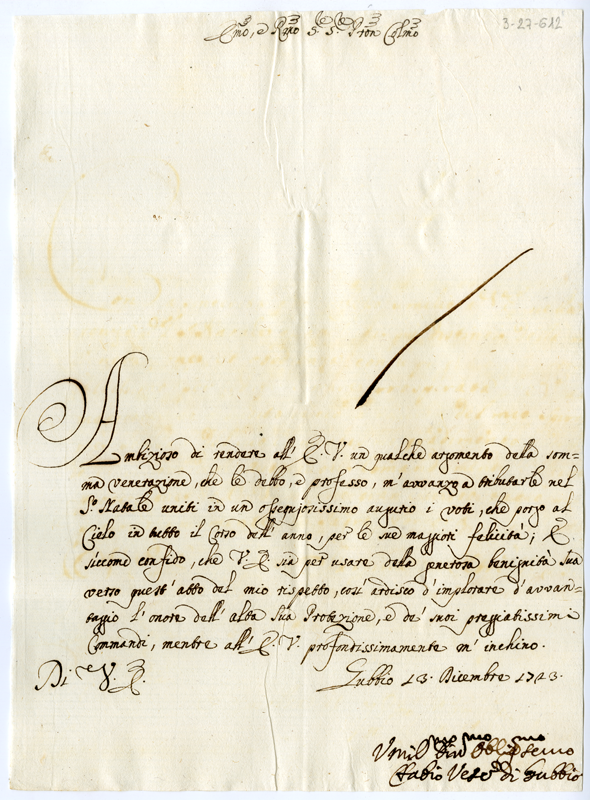 3-27-612
Emo, e Rmo S. S. Pron Colmo
Ambizioso di rendere all' E. V. un qualche argomento della som=
ma venerazione, che le debbo, e professo, m' avvanzo a tributarle nel
So Natale uniti in un ossequiosissimo augurio i voti, che porgo al
Cielo in tutto il Corso dell' anno, per le sue maggiori felicità; E
siccome confido, che V. E. sia per usare della generosa benignità sua
verso quest' atto del mio rispetto, così ardisco d' implorare d' avvan=
taggio l' onore dell' alta sua Protezione, e de' suoi preggiatissimi
Commandi, mentre all' E. V. profondissimamente m' inchino.
Di V. E. Gubbio 23. Dicembre 1723.
Umilmo Divmo Obblmo Servo
Fabio Vescvo di Gubbio